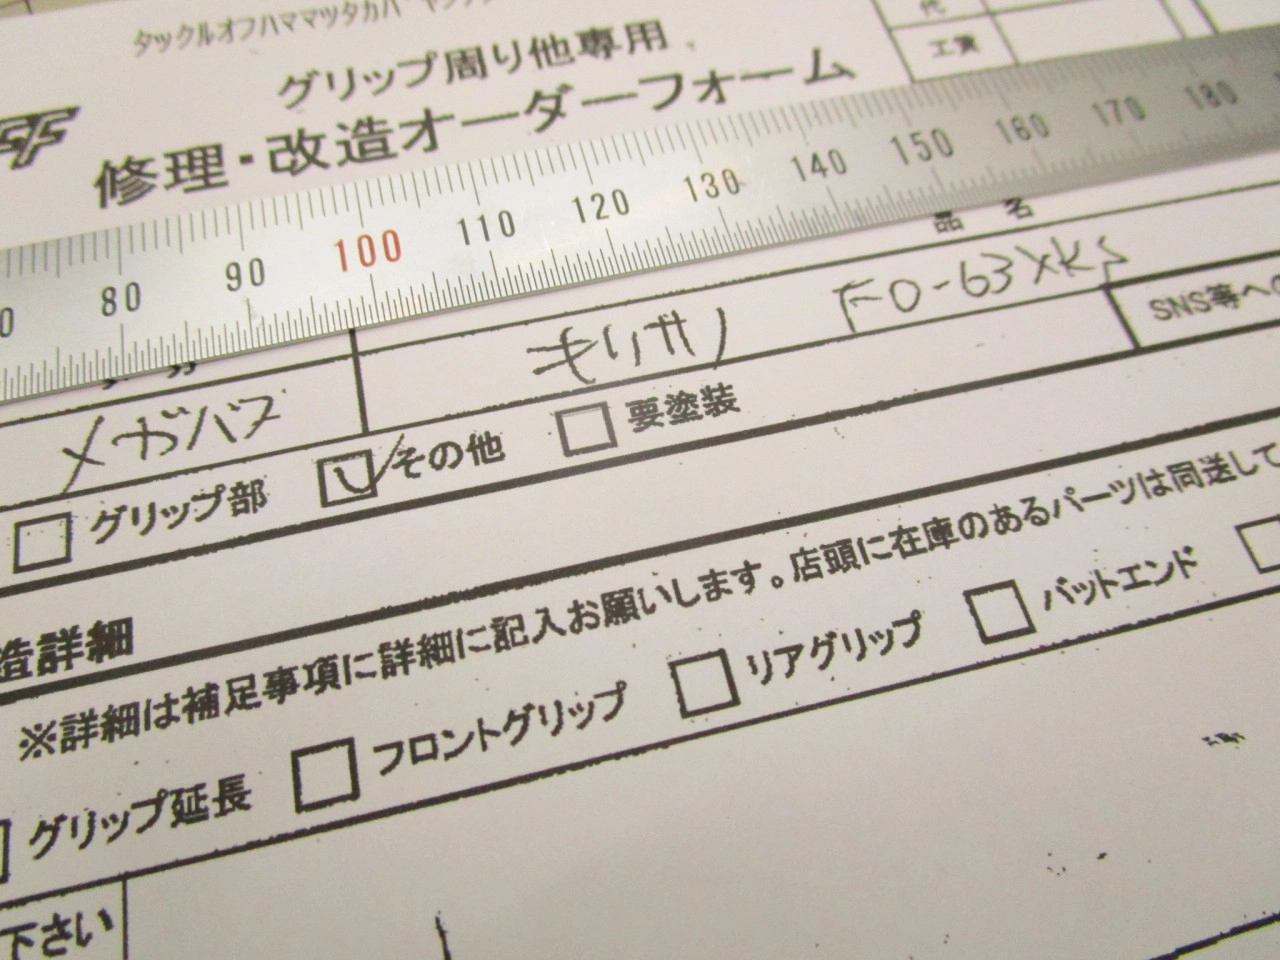 タックルオフハママツタカバヤシテン
グリップ周り他専用
修理・改造オーダーフォーム
代
工賃
80 90 100 110 120 130 140 150 160 170 180
品 名
メガバス
キリサリ FO-63XKS
SNS等への
グリップ部 その他 要塗装
造詳細
※詳細は補足事項に詳細に記入お願いします。店頭に在庫のあるパーツは同送して
グリップ延長 フロントグリップ リアグリップ バットエンド
下さい